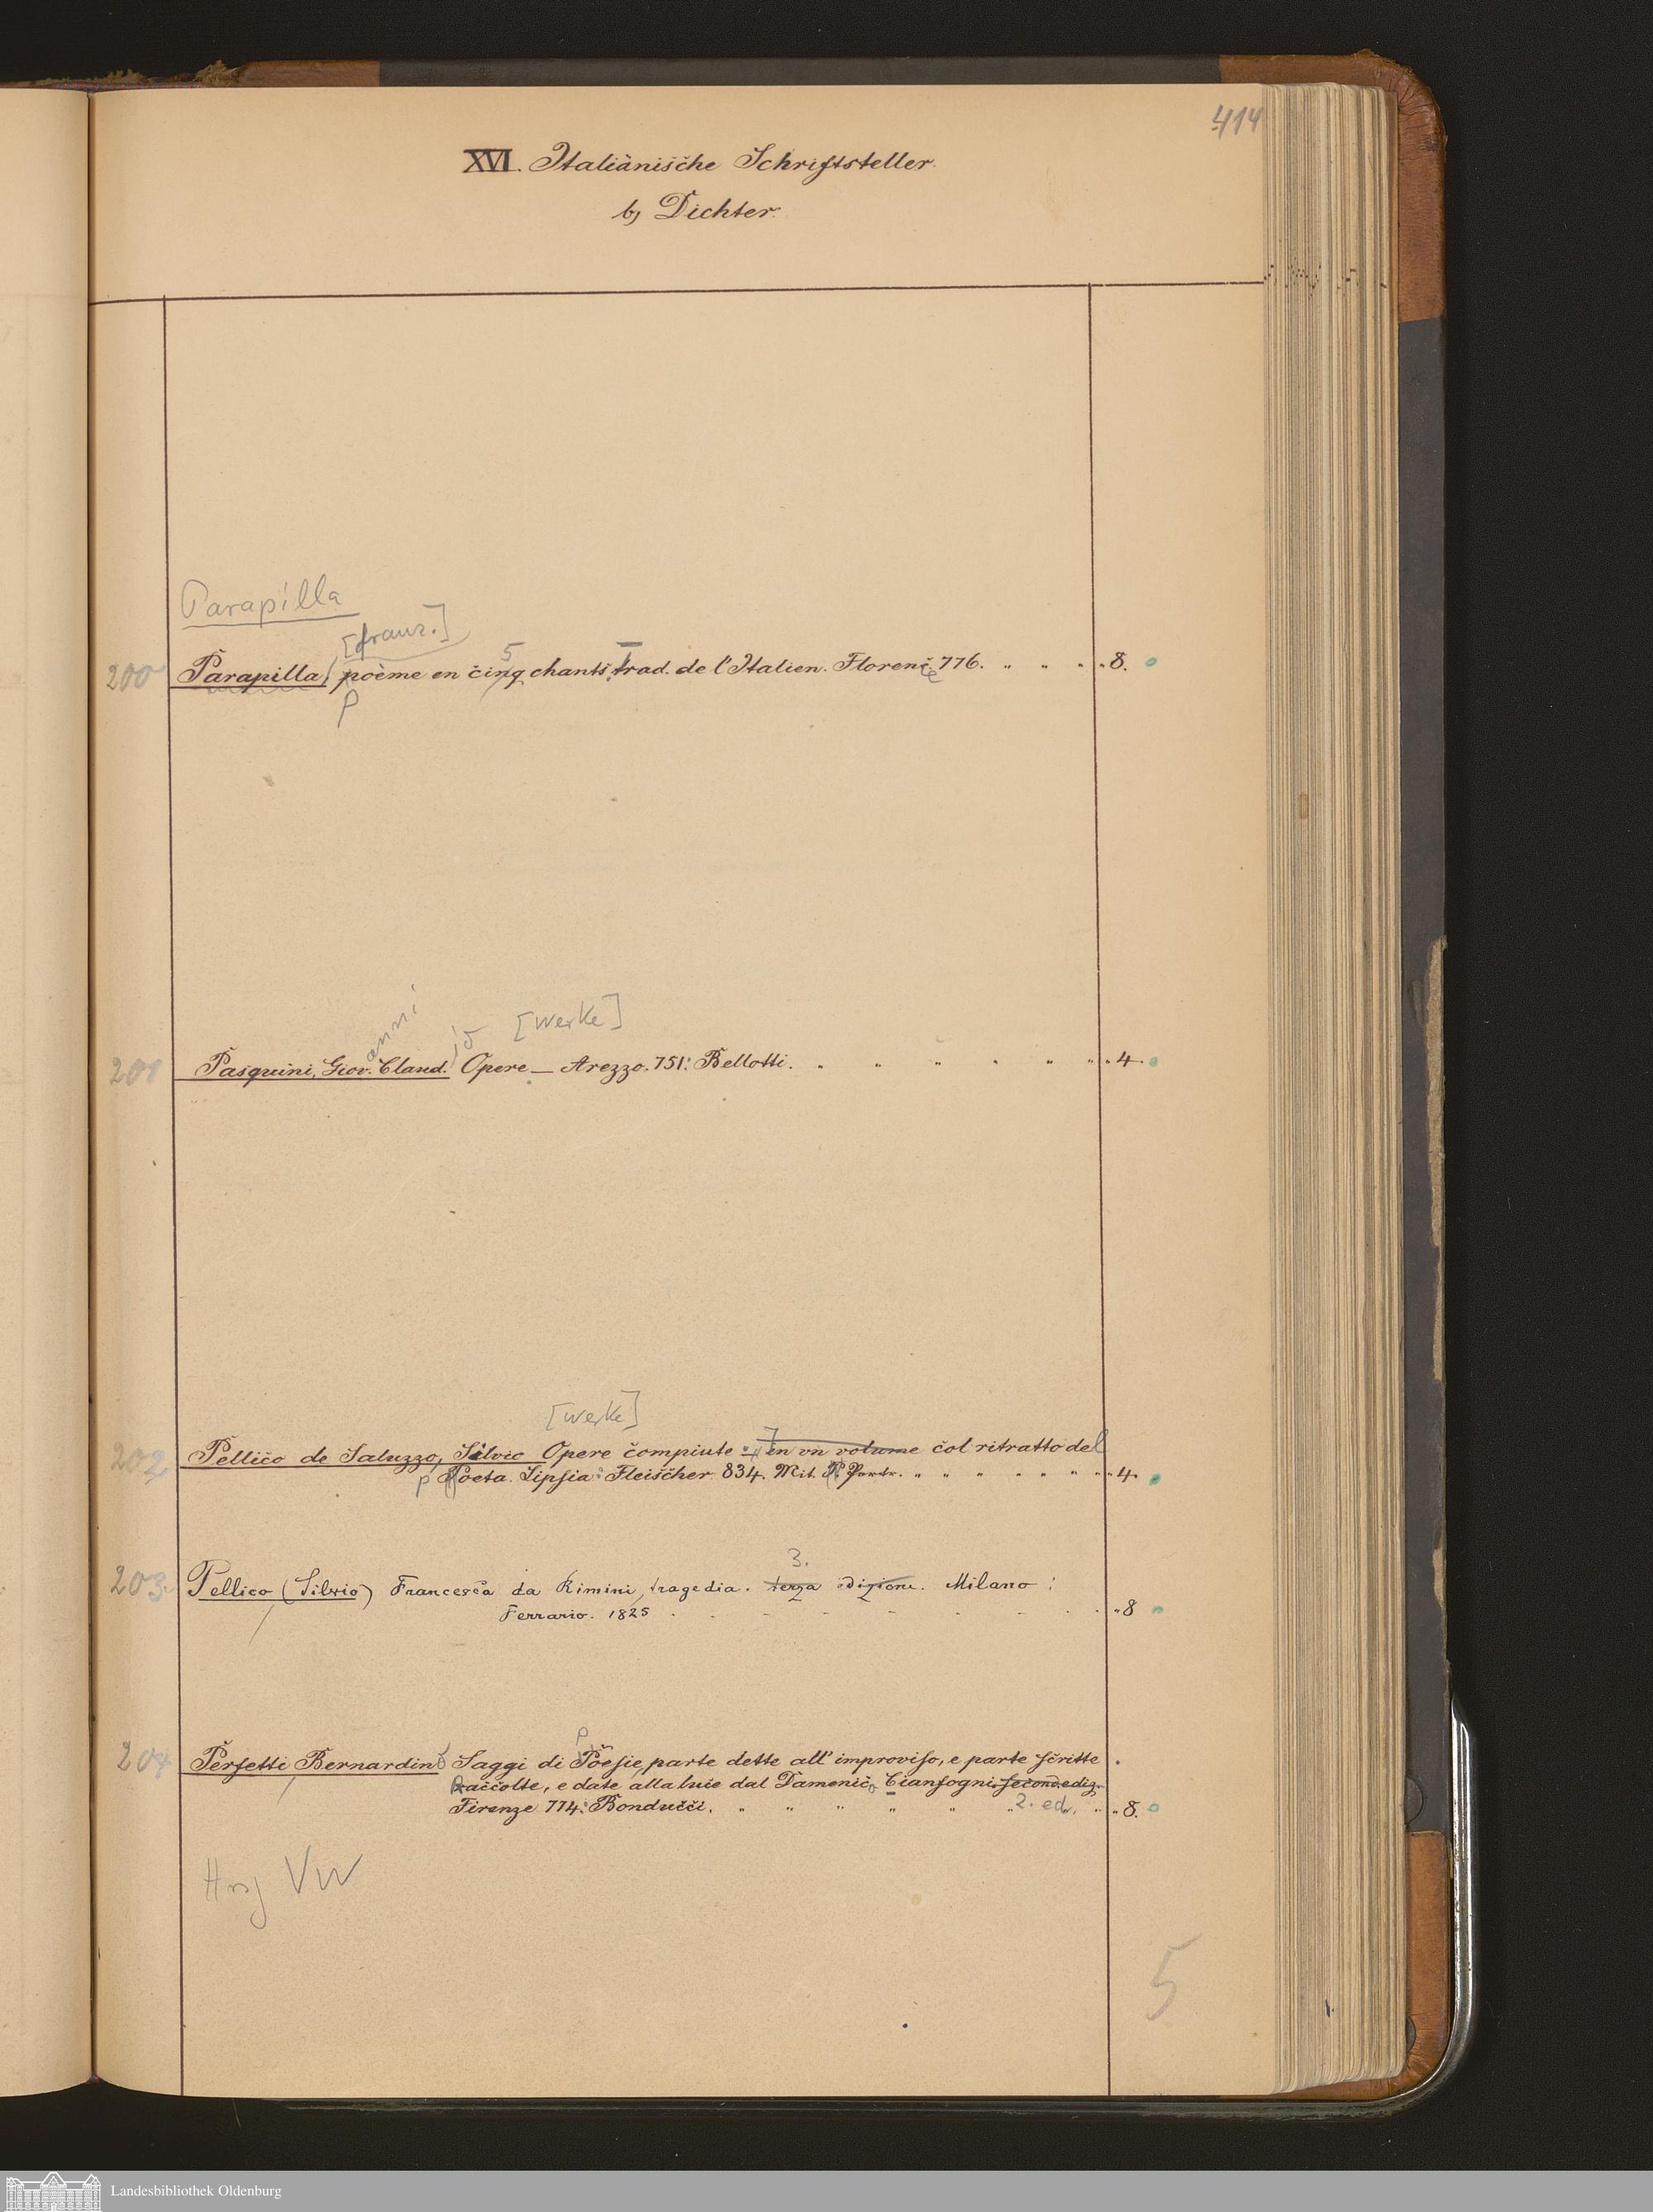 414
XVI. Italiänische Schriftsteller.
b, Dichter.
Parapilla
[franz.]
5
200 Parapilla, poème en cinq chants, trad. de l'Italien. Florenz 776. " " " " 8.
p
anni io [Werke]
201 Pasquini, Giov. Claud. Opere — Arezzo. 751: Bellotti. " " " " " " " 4.
[Werke]
202 Pellico de Saluzzo, Silvio Opere compiute in un volume col ritratto del
p Poeta. Lipsia: Fleischer 834. Mit P. Portr. " " " " " " " " 4.
3.
203. Pellico (Silvio) Francesca da Rimini, tragedia. terza edizione. Milano:
Ferrario. 1825 " 8
p
204 Perfetti Bernardino Saggi di Poesie, parte dette all' improviso, e parte scritte
raccolte, e date alla luce dal Domenico Cianfogni. second. ediz.
Firenze 774: Bonducci. " " " " " " 2. ed. " " 8.
VW
5
Landesbibliothek Oldenburg